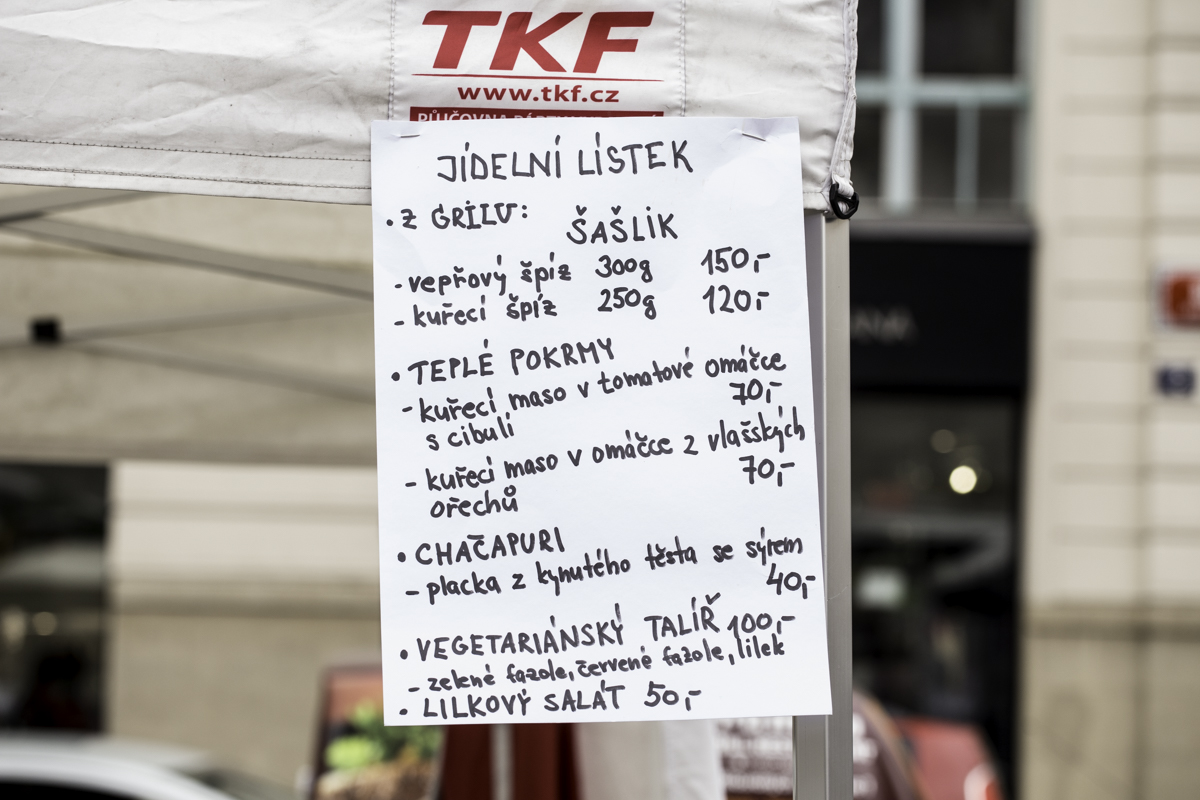 TKF
www.tkf.cz
JÍDELNÍ LÍSTEK
• Z GRILU:
ŠAŠLIK
- vepřový špíz 300g 150,-
- kuřecí špíz 250g 120,-
• TEPLÉ POKRMY
- kuřecí maso v tomatové omáčce
s cibulí 70,-
- kuřecí maso v omáčce z vlašských
ořechů 70,-
• CHAČAPURI
- placka z kynutého těsta se sýrem
40,-
• VEGETARIÁNSKÝ TALÍŘ 100,-
- zelené fazole, červené fazole, lilek
• LILKOVÝ SALÁT 50,-